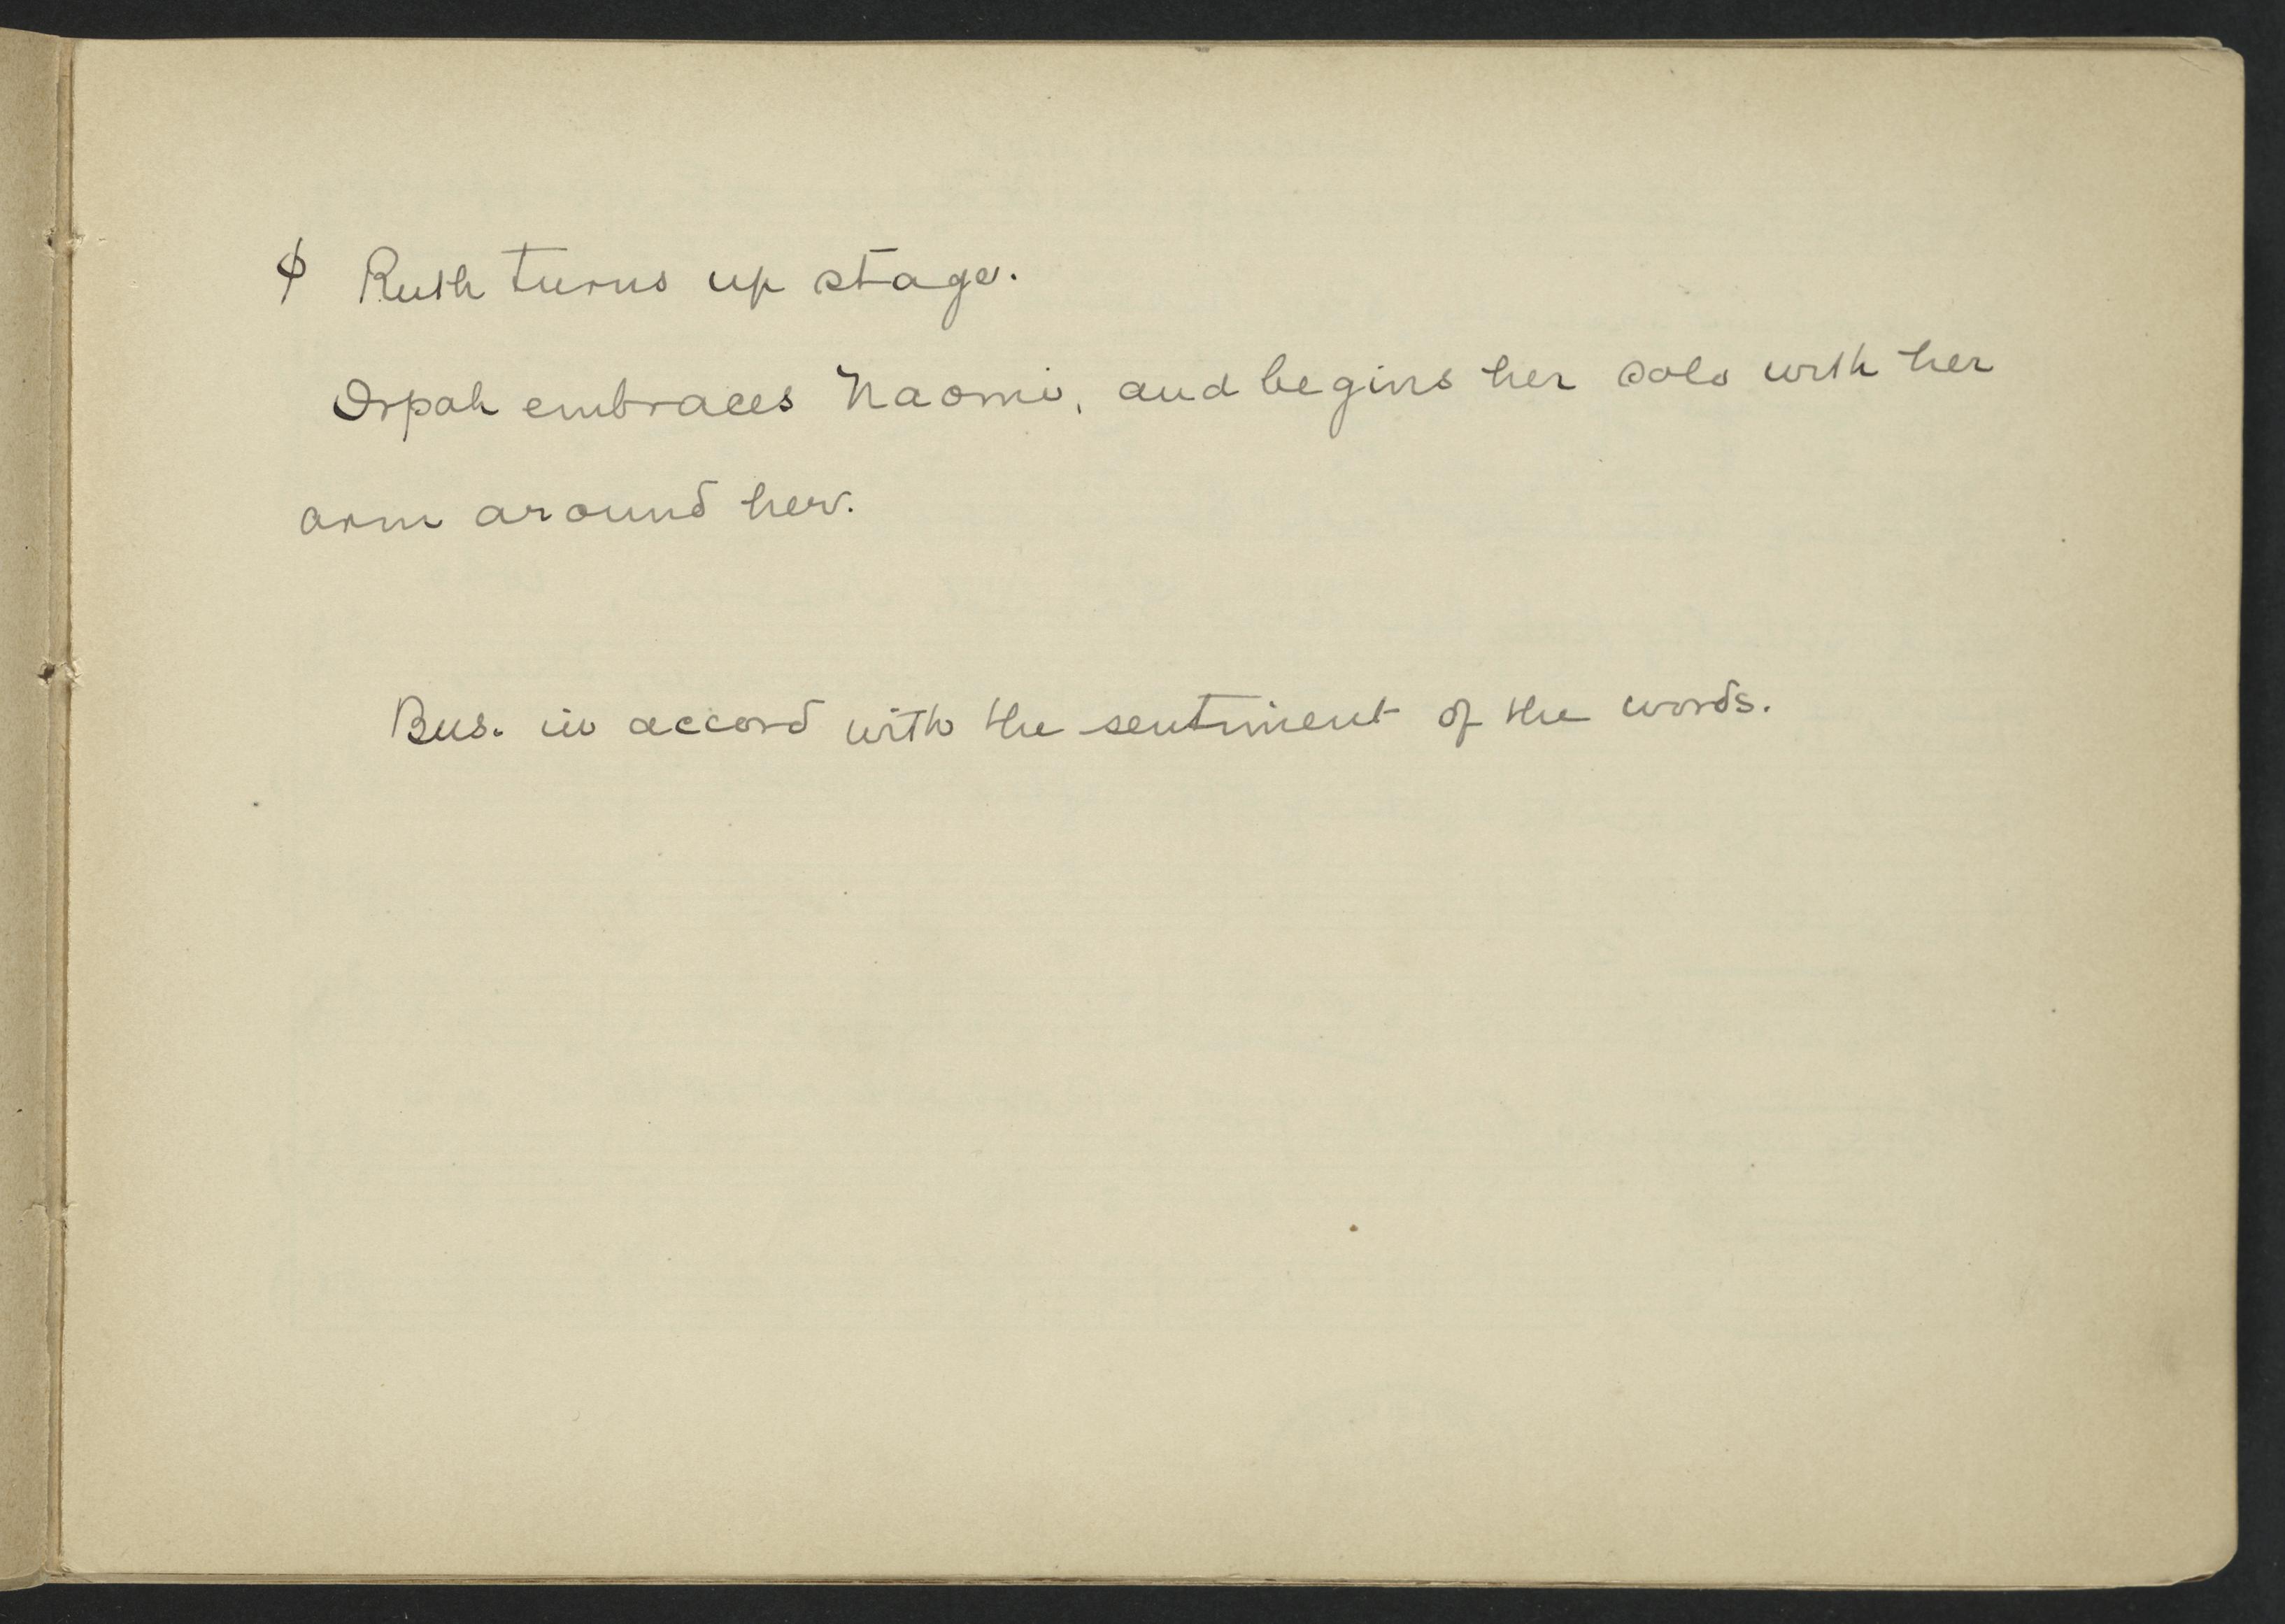 ϕ Ruth turns up stage.
Orpah embraces Naomi, and begins her solo with her
arm around her.
Bus. in accord with the sentiment of the words.